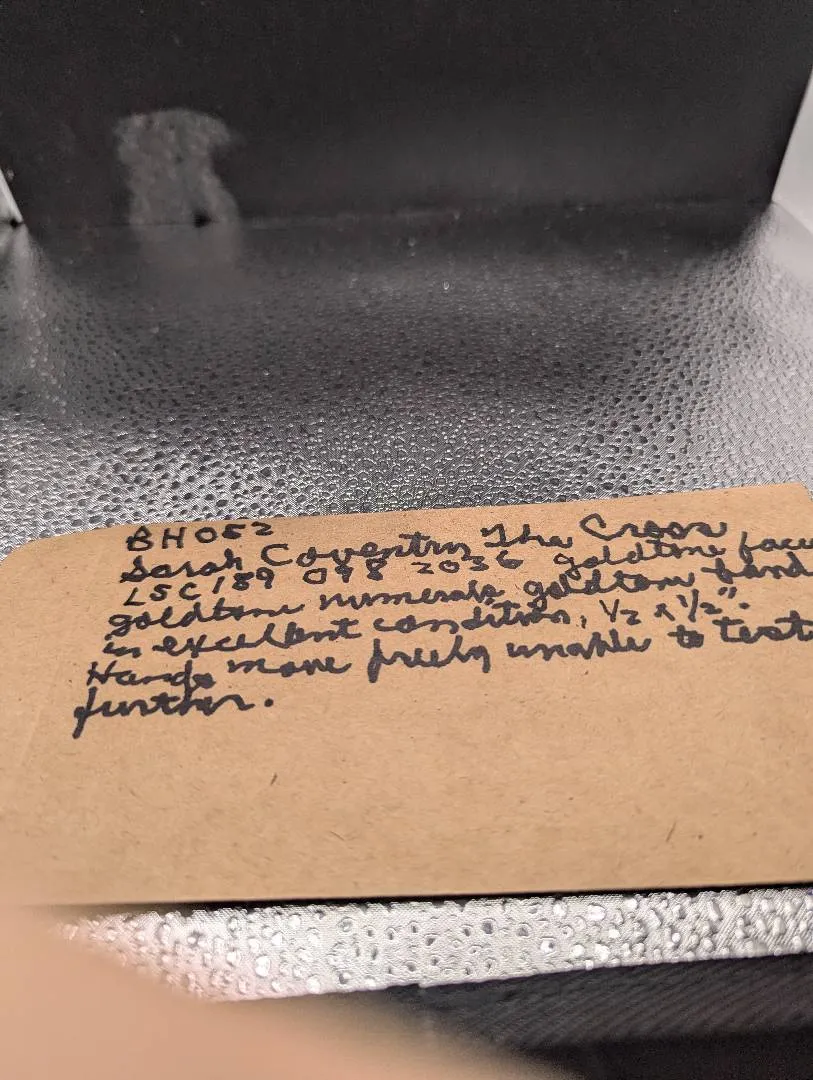 BH052
Sarah Coventry The Cross
LSC189 098 2036 goldtone face
goldtone numerals goldtone band
in excellent condition, 1/2 x 1/2".
Hands move freely unable to test
further.